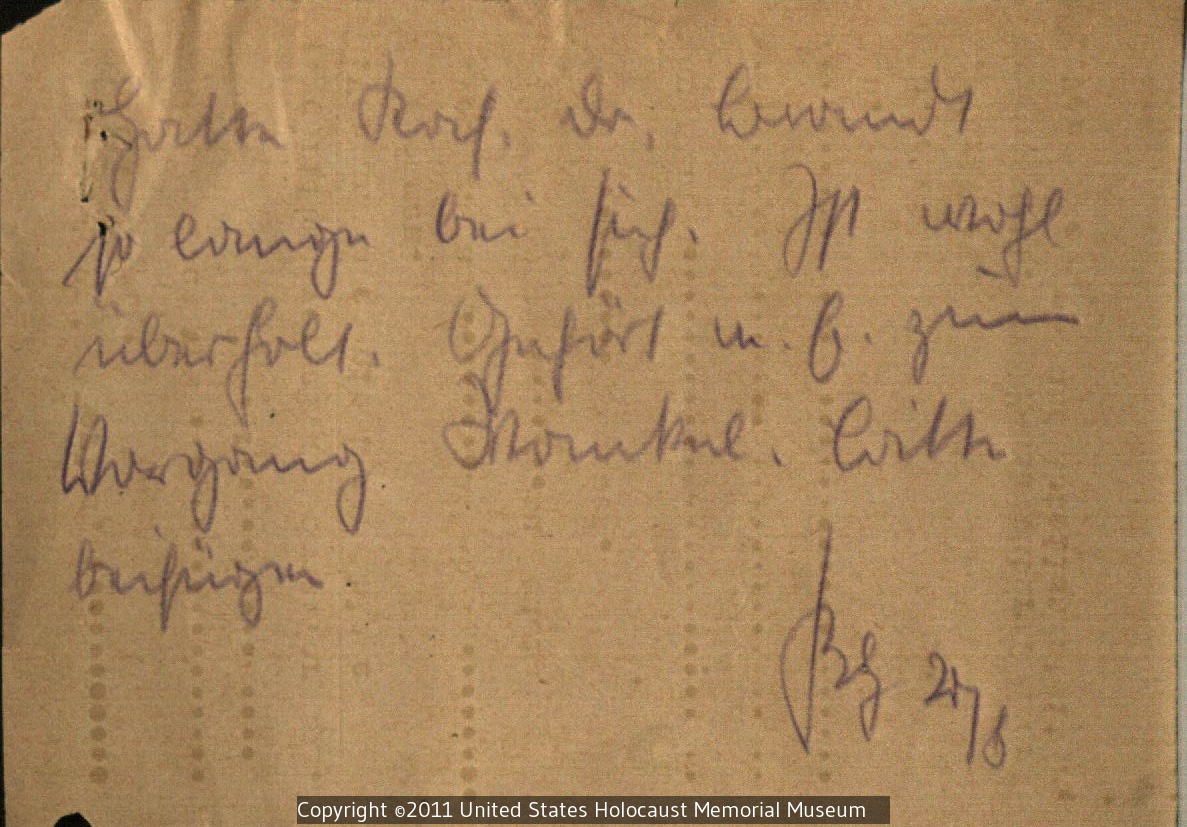 Hatte Kach. Dr. Brandt
so lange bei sich. Ist wohl
überholt. Gehört m. E. zum
Vorgang Mankel. Bitte
beifügen
Copyright ©2011 United States Holocaust Memorial Museum